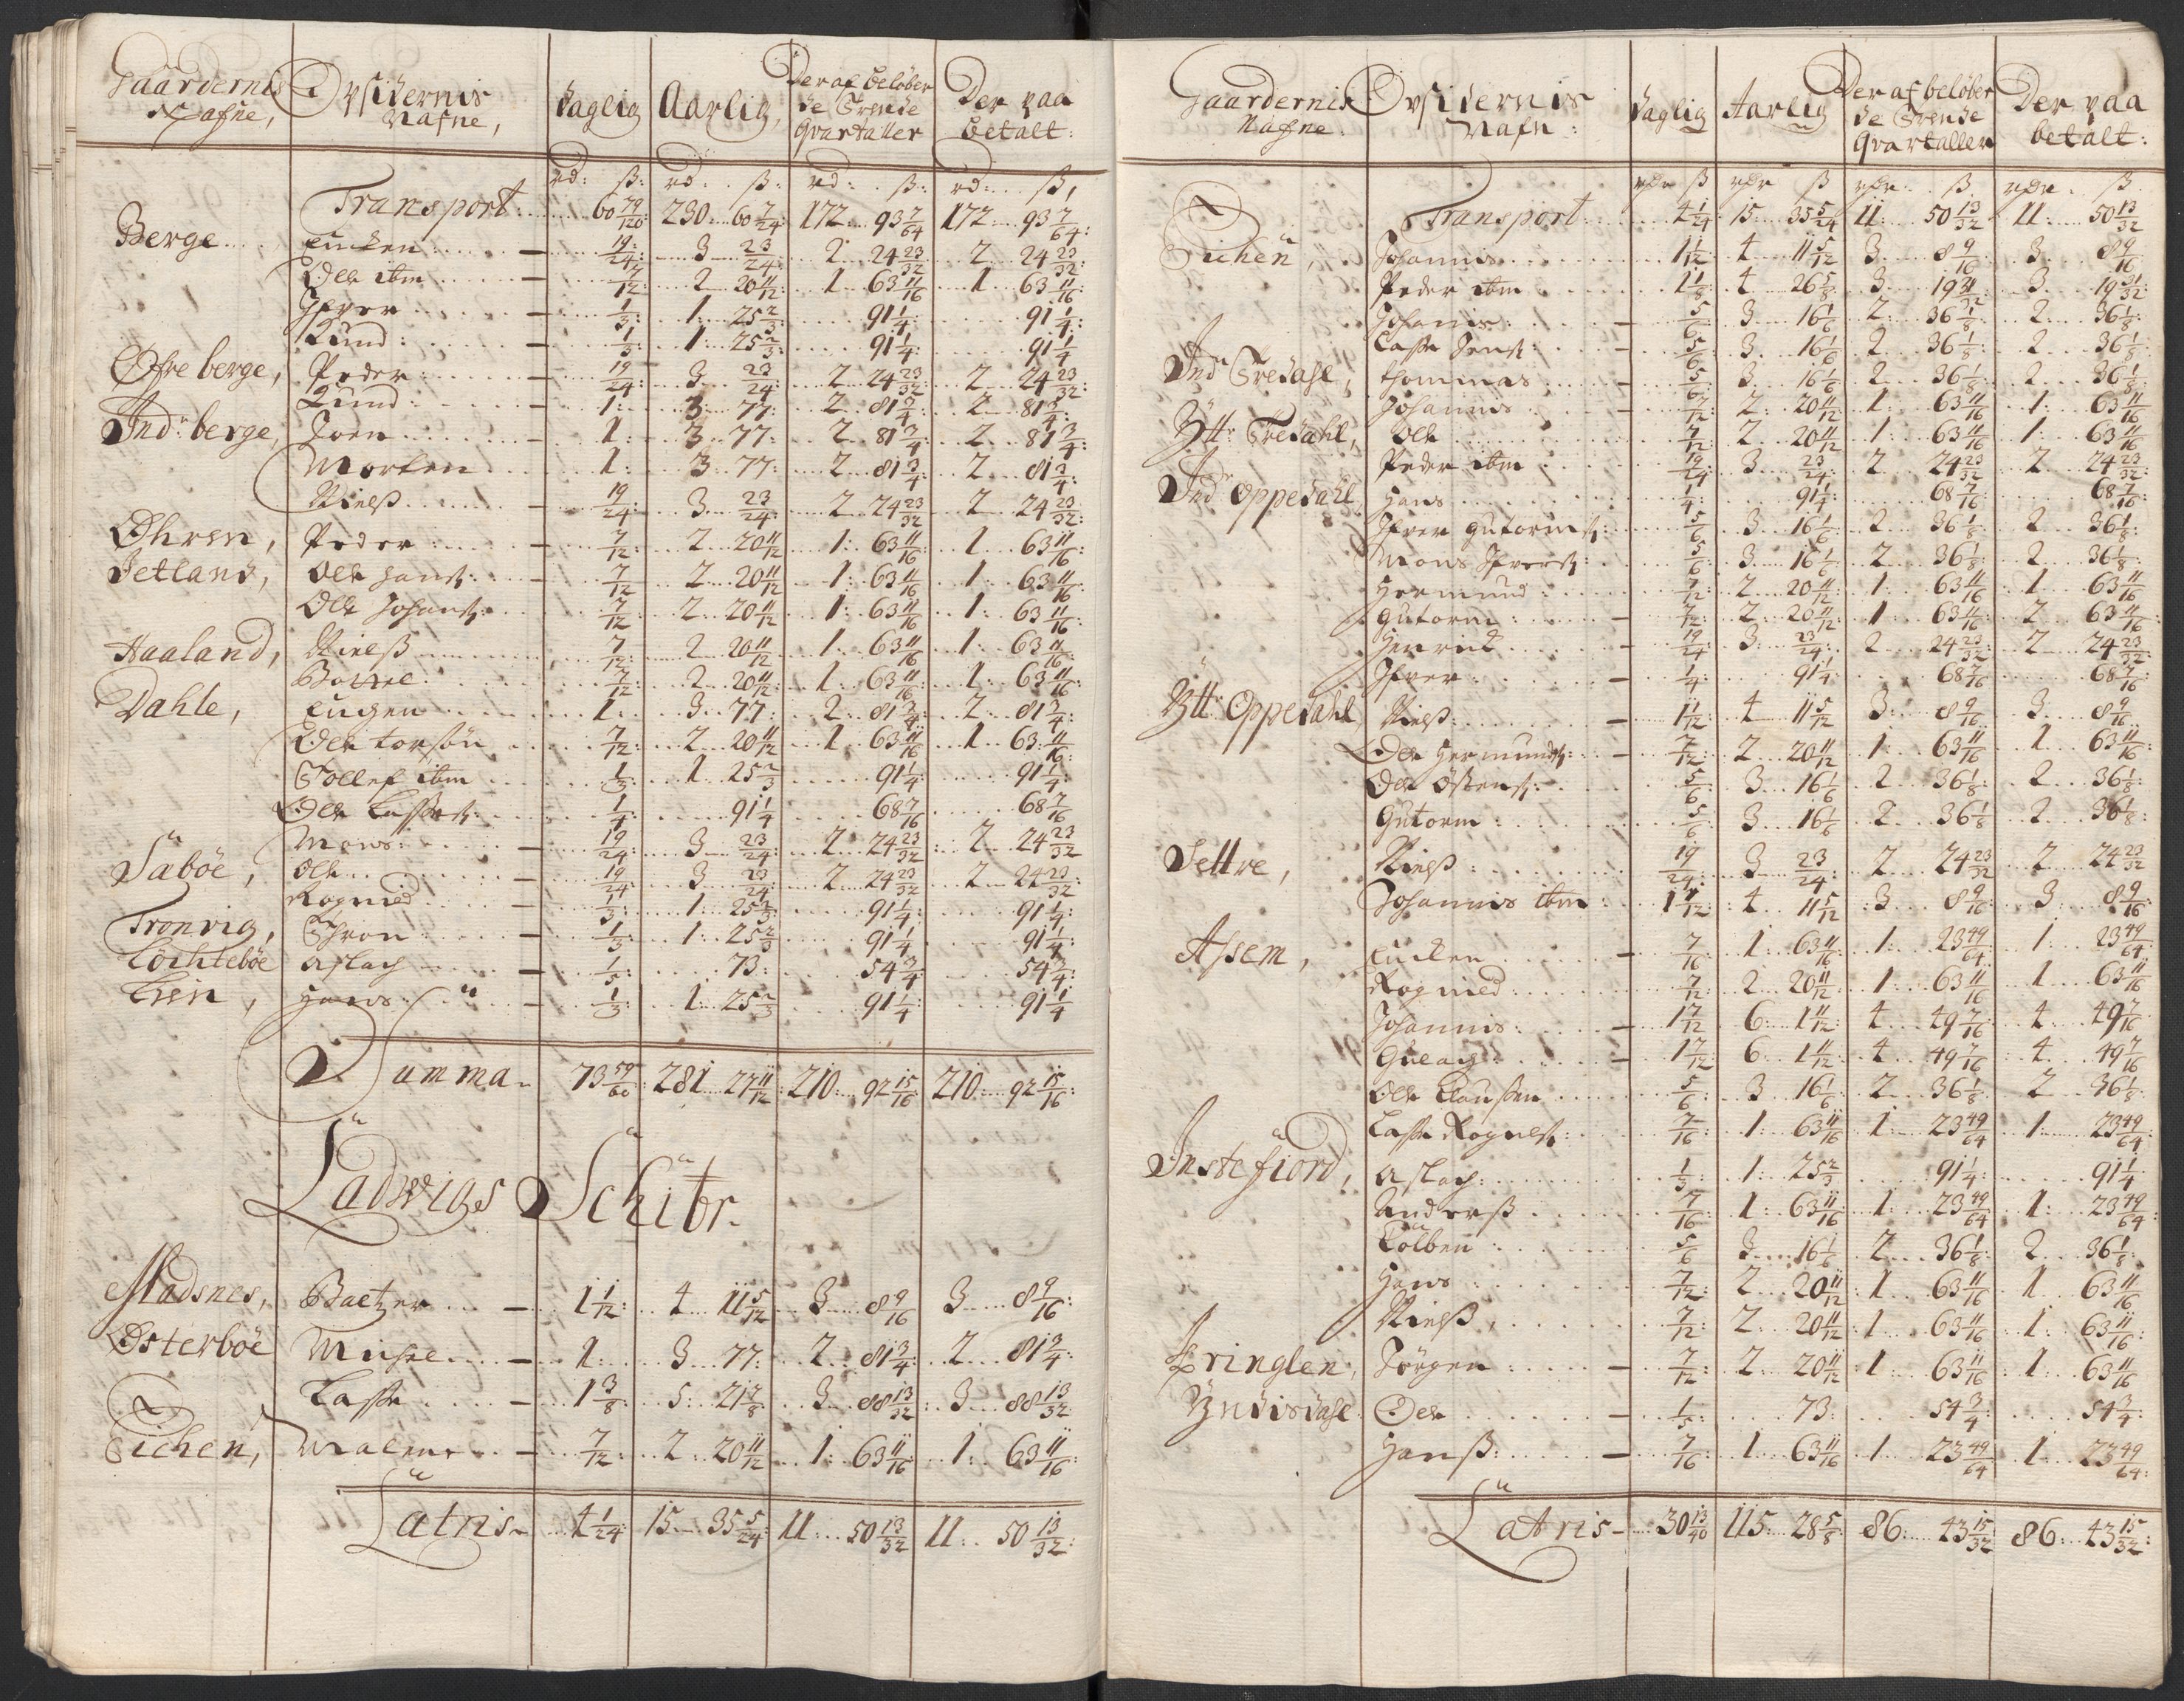 Gaardernis Nafne, Opsidernis Nafne, Daglig Aarlig, Der af beløber de Trende Qvartaller Der paa betalt:
rd: ß: rd: ß: rd: ß: rd: ß,
Transport: 60 79/120 230: 60 7/24 172: 93 7/64 172: 93 7/64:
Berge Encken 19/24: 3 23/24: 2 24 23/32 2 24 23/32:
Ole ibm 7/12: 2 20 11/12: 1 63 11/16 1 63 11/16
Ifver 1/3: 1: 25 2/3 91 1/4: 91 1/4:
Knud: 1/3: 1: 25 2/3: 91 1/4: 91 1/4
Øfre berge, Peder 19/24: 3 23/24 2 24 23/32: 2 24 23/32:
Knud: 1: 3 77: 2 81 3/4: 2 81 3/4:
Ind: berge, Joen 1: 3 77: 2 81 3/4: 2 81 3/4:
Morten 1: 3 77: 2 81 3/4 2 81 3/4
Nielß 19/24: 3 23/24: 2 24 23/32 2 24 23/32:
Øhren, Peder 7/12: 2 20 11/12 1: 63 11/16: 1 63 11/16
Setland, Ole Hans: 7/12 2 20 11/12 1: 63 11/16 1: 63 11/16
Ole Johans: 7/12: 2 20 11/12 1: 63 11/16 1: 63 11/16
Haaland, Nielß 7/12: 2 20 11/12 1: 63 11/16 1: 63 11/16:
Baaree 7/12: 2 20 11/12: 1: 63 11/16 1: 63 11/16:
Dahle, Eugen 1: 3 77: 2: 81 3/4: 2: 81 3/4:
Ole torsøn 7/12: 2 20 11/12: 1 63 11/16 1 63 11/16:
Tollef ibm 1/3: 1 25 2/3 91 1/4: 91 1/4:
Ole Lasses: 1/4: 91 1/4 68 7/16 68 7/16
Mons: 19/24: 3 23/24: 2 24 23/32: 2 24 23/32
Sabøe, Ole 19/24 3 23/24: 2 24 23/32 2 24 23/32:
Rognied 1/3: 1: 25 2/3: 91 1/4: 91 1/4:
Tronvig, Thron 1/3 1: 25 2/3 91 1/4 91 1/4:
Løchtebøe Aslach 1/5: 73: 54 3/4: 54 3/4:
Lien, Hans: 1/3: 1 25 2/3 91 1/4 91 1/4
Summa 73 59/60: 281 27 11/12: 210: 92 15/16 210: 92 15/16:
Ladwigs Schibr.
Madsnes, Baltzer 1 1/12: 4 11 5/12 3 8 9/16 3 8 9/16:
Østerbøe Michel 1: 3 77: 2 81 3/4: 2 81 3/4:
Lasse 1 3/8 5: 21 7/8 3 88 13/32: 3 88 13/32:
Eichen, Malene 7/12: 2 20 11/12 1: 63 11/16 1: 63 11/16:
Latris 4 1/24: 15 35 5/24: 11: 50 13/32 11: 50 13/32:
Gaardernis Nafne. Opsidernis Nafn: Daglig Aarlig Der af beløber de Trende Qvartaller Der paa betalt:
rdr ß rdr ß rdr: ß. rdr. ß.
Transport: 4 1/24 15 35 5/24 11: 50 13/32 11: 50 13/32
Eichen, Johannis 1 1/12: 4 11 5/12 3 8 9/16 3. 8 9/16
Peder ibm 1 1/8: 4 26 5/8 3 19 31/32 3 19 31/32:
Johannis 5/6 3 16 1/6 2: 36 1/8: 2 36 1/8:
Lasse Jens: 5/6: 3. 16 1/6 2 36 1/8 2 36 1/8:
Ind Tredahl, thommas 5/6: 3 16 1/6 2 36 1/8: 2 36 1/8:
Johannis 7/12 2: 20 11/12 1: 63 11/16 1: 63 11/16
Ytt: Tredahl, Ole 7/12 2 20 11/12 1: 63 11/16 1: 63 11/16
Peder ibm 19/24 3 23/24: 2 24 23/32 2 24 23/32:
Ind oppedahl Hans 1/4: 91 1/4: 68 7/16 68 7/16:
Ifver gutorms: 5/6 3 16 1/6 2 36 1/8 2 36 1/8:
Mons Ifvers: 5/6 3 16 1/6 2 36 1/8: 2 36 1/8:
Hermund: 7/12 2 20 11/12: 1: 63 11/16 1 63 11/16
Gutorm 7/12: 2: 20 11/12: 1 63 11/16 2 63 11/16
Henrick 19/24 3: 23/24: 2 24 23/32: 2 24 23/32:
Ifver 1/4: 91 1/4: 68 7/16 68 7/16
Ytt: Oppedahl, Nielß: 1 1/12: 4 11 5/12 3: 8 9/16: 3. 8 9/16
Ole Hermunds: 7/12: 2 20 11/12 1: 63 11/16 1 63 11/16:
Ole Østens: 5/6 3 16 1/6 2 36 1/8: 2 36 1/8:
Gutorm 5/6 3 16 1/6 2 36 1/8 2 36 1/8:
Settre, Nielß: 19/24: 3 23/24: 2 24 23/32 2 24 23/32
Johannis ibm: 1 1/12: 4 11 5/12 3 8 9/16: 3 8 9/16:
Assem, Encken 7/16 1: 63 11/16: 1: 23 49/64: 1: 23 49/64:
Rognied 7/12: 2 20 11/12 1 63 11/16 1 63 11/16
Johannis: 1 7/12 6: 1 11/12: 4 49 7/16: 4: 49 7/16
Gulach 1 7/12: 6 1 11/12 4 49 7/16 4. 49 7/16
Ole Claussen 5/6 3 16 1/6 2 36 1/8 2 36 1/8:
Lasse Rognes: 7/16: 1: 63 11/16 1: 23 49/64 1 23 49/64:
Instefiord, Aslach: 1/3: 1: 25 2/3 91 1/4: 91 1/4:
Anderß 7/16: 1: 63 11/16: 1: 23 49/64 1: 23 49/64:
Colben 5/6 3 16 1/6 2 36 1/8: 2 36 1/8:
Hans 7/12: 2 20 11/12: 1 63 11/16 1 63 11/16
Nielß, 7/12: 2 20 11/12: 1 63 11/16 1: 63 11/16:
Kringlen, Jørgen 7/12: 2 20 11/12: 1 63 11/16 1 63 11/16
Yndisdahl Ole 1/5: 73: 54 3/4: 54 3/4:
Hanß: 7/16: 1 63 11/16 1 23 49/64 1 23 49/64:
Latris 30 13/40 115: 28 5/8: 86: 43 15/32 86: 43 15/32: